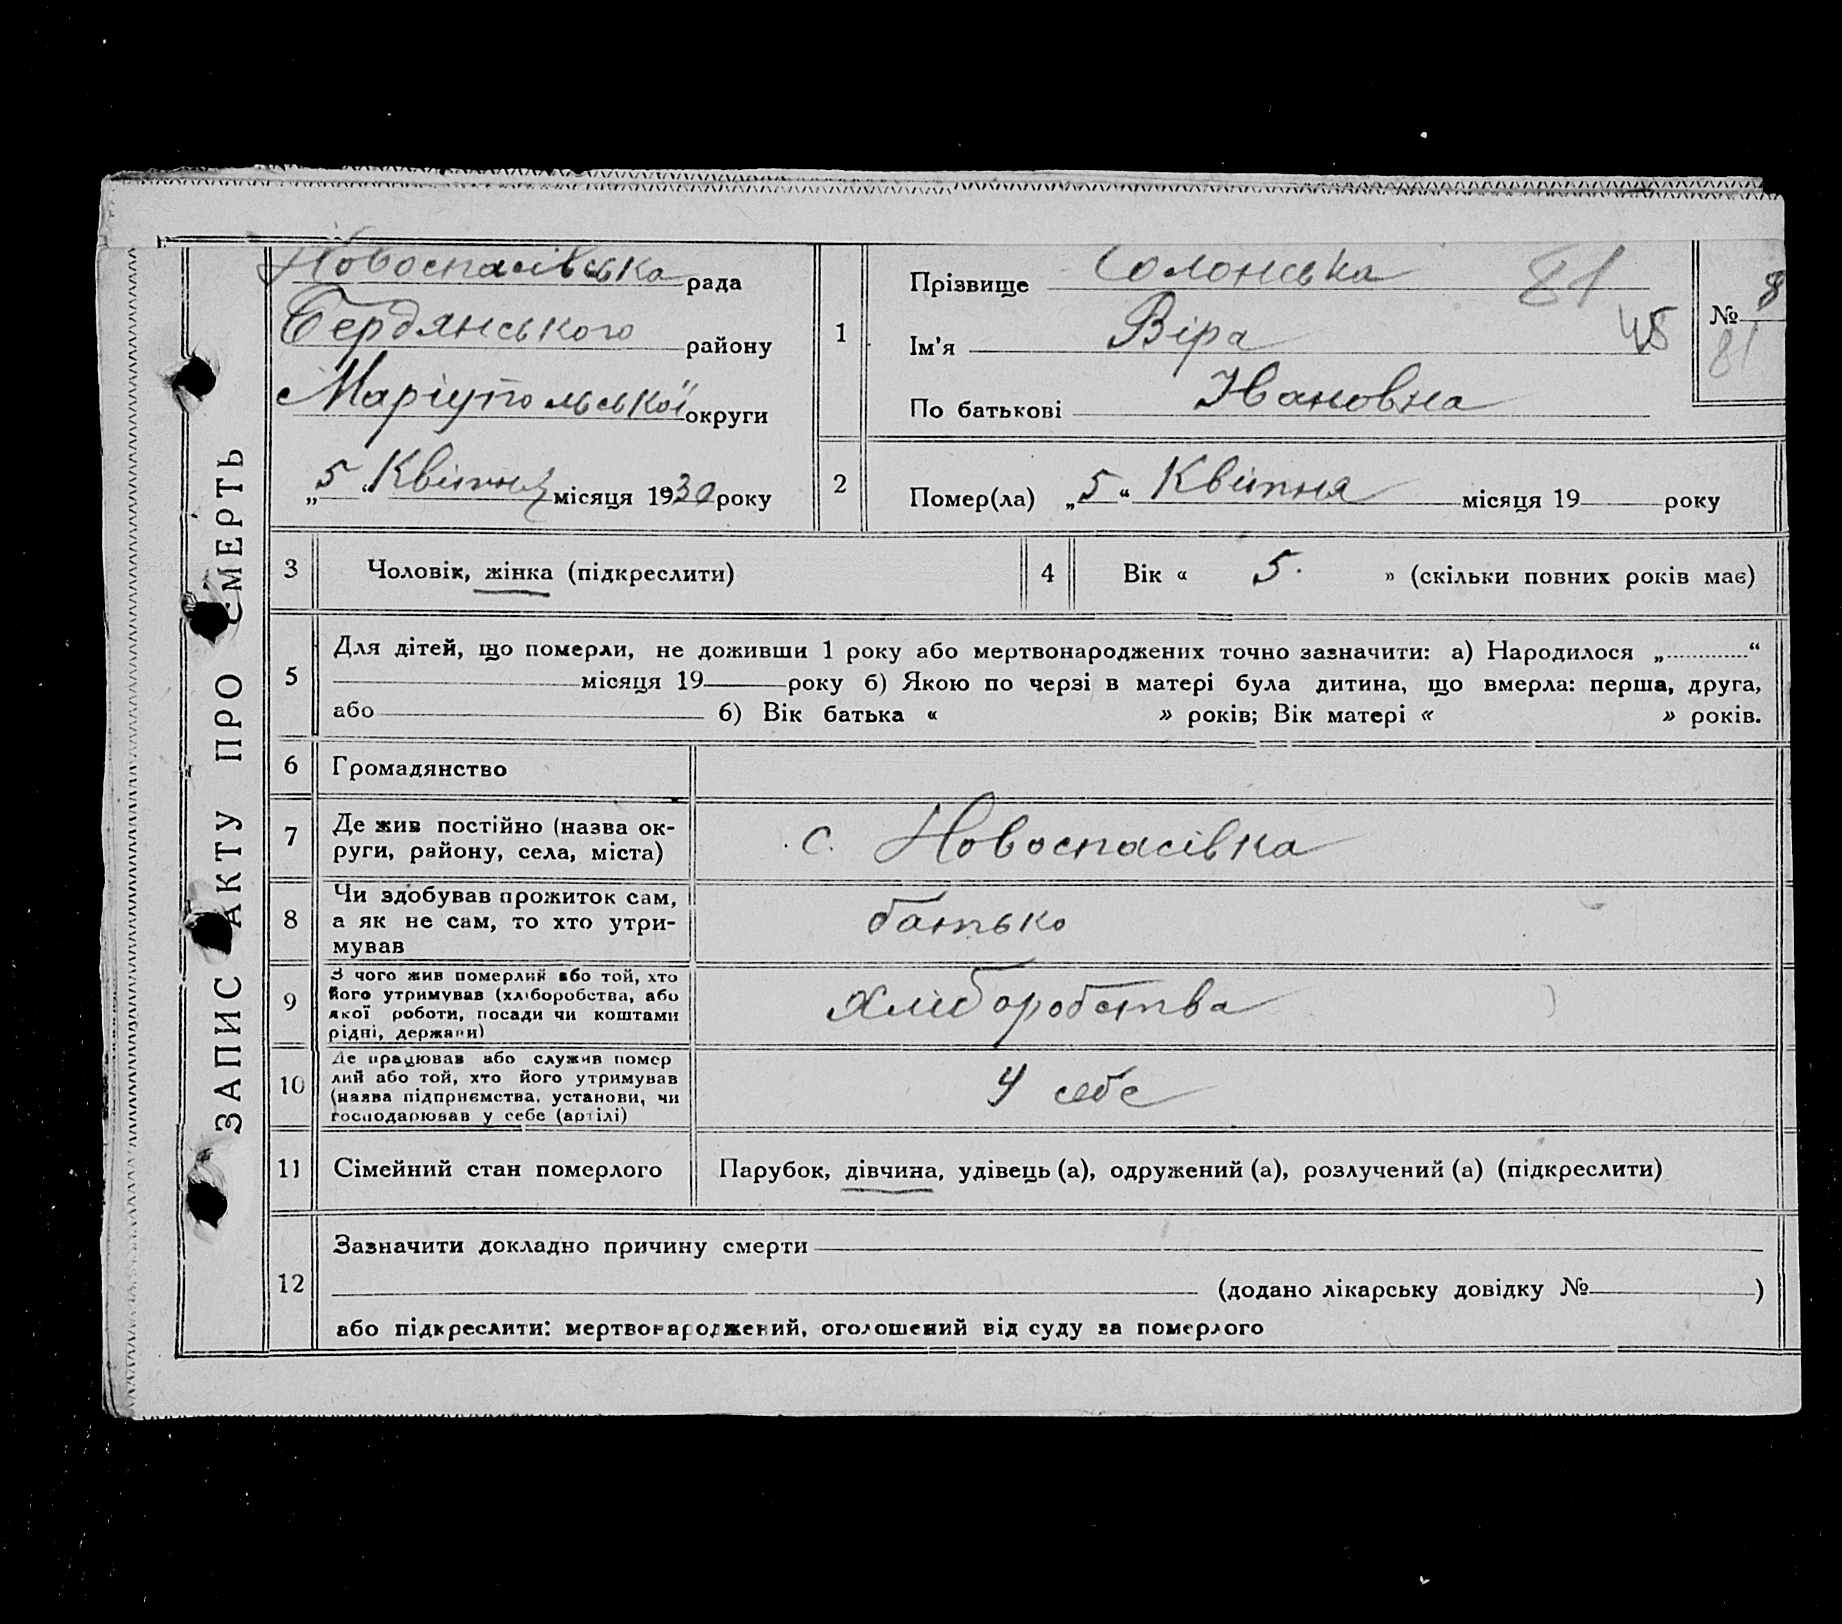 ЗАПИС АКТУ ПРО СМЕРТЬ
Новоспасівська рада
Бердянського району
Маріупольської округи
„5“ Квітня місяця 1930 року
1
Прізвище Солонська 81
Ім'я Віра 45
По батькові Ивановна
№ 8
81
2
Помер(ла) „5“ Квітня місяця 19 року
3 Чоловік, жінка (підкреслити)
4 Вік « 5. » (скільки повних років має)
5
Для дітей, що померли, не доживши 1 року або мертвонароджених точно зазначити: а) Народилося „ “
місяця 19 року б) Якою по черзі в матері була дитина, що вмерла: перша, друга,
або б) Вік батька « » років; Вік матері « » років.
6 Громадянство
7 Де жив постійно (назва ок-
руги, району, села, міста)
с. Новоспасівка
8 Чи здобував прожиток сам,
а як не сам, то хто утри-
мував
батько
9 З чого жив померлий або той, хто
його утримував (хліборобства, або
якої роботи, посади чи коштами
рідні, держави)
хліборобства
10 Де працював або служив помер
лий або той, хто його утримував
(назва підприємства, установи, чи
господарював у себе (артілі)
У себе
11 Сімейний стан померлого
Парубок, дівчина, удівець (а), одружений (а), розлучений (а) (підкреслити)
12
Зазначити докладно причину смерти
(додано лікарську довідку № )
або підкреслити: мертвонароджений, оголошений від суду за померлого